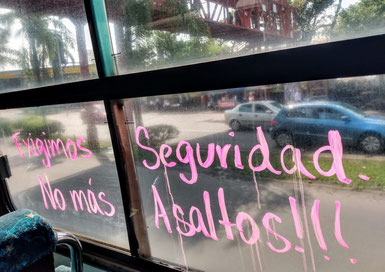 Exigimos Seguridad.
No más Asaltos!!!